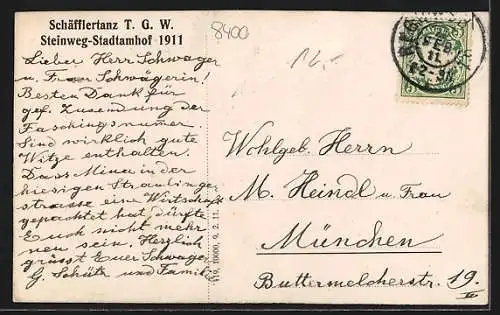 Schäfflertanz T. G. W.
Steinweg-Stadtamhof 1911
8400
12,-
Lieber Herr Schwager
u. Frau Schwägerin!
Besten Dank für
gef. Zusendung der
Faschingsnumer.
Sind wirklich gute
Witze enthalten.
Dass Mina in der
hiesigen Straubinger
strasse eine Wirtschaft
gepachtet hat, dürfte
Euch nicht mehr
neu sein. Herzlich
grüsst Euer Schwager
G. Schütz und Familie
Wohlgeb. Herrn
M. Heindl u. Frau
München
Buttermelcherstr. 19.
FEB.
11.